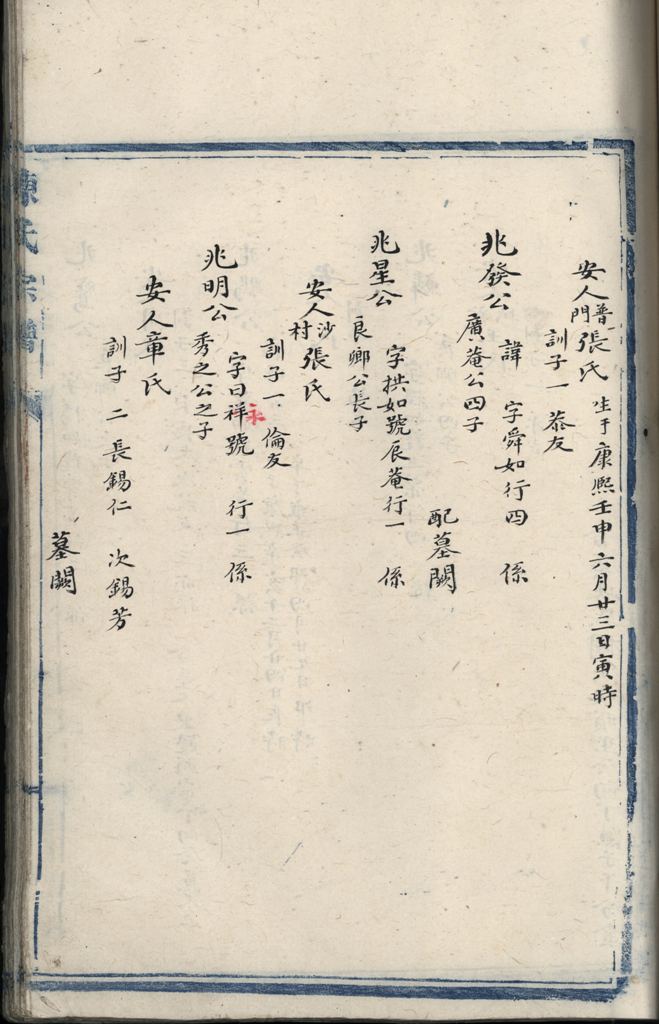 安人普門張氏 生于康熙壬申六月廿三日寅時
訓子一 恭友
兆發公 諱 字舜如行四 係
廣菴公四子
配墓闕
兆星公 字拱如號辰菴行一 係
良鄉公長子
安人沙村張氏
訓子一 倫友
兆明公 字日祥號 行一 係
永
秀之公之子
安人章氏
訓子 二 長錫仁 次錫芳
墓闕
陳氏宗譜